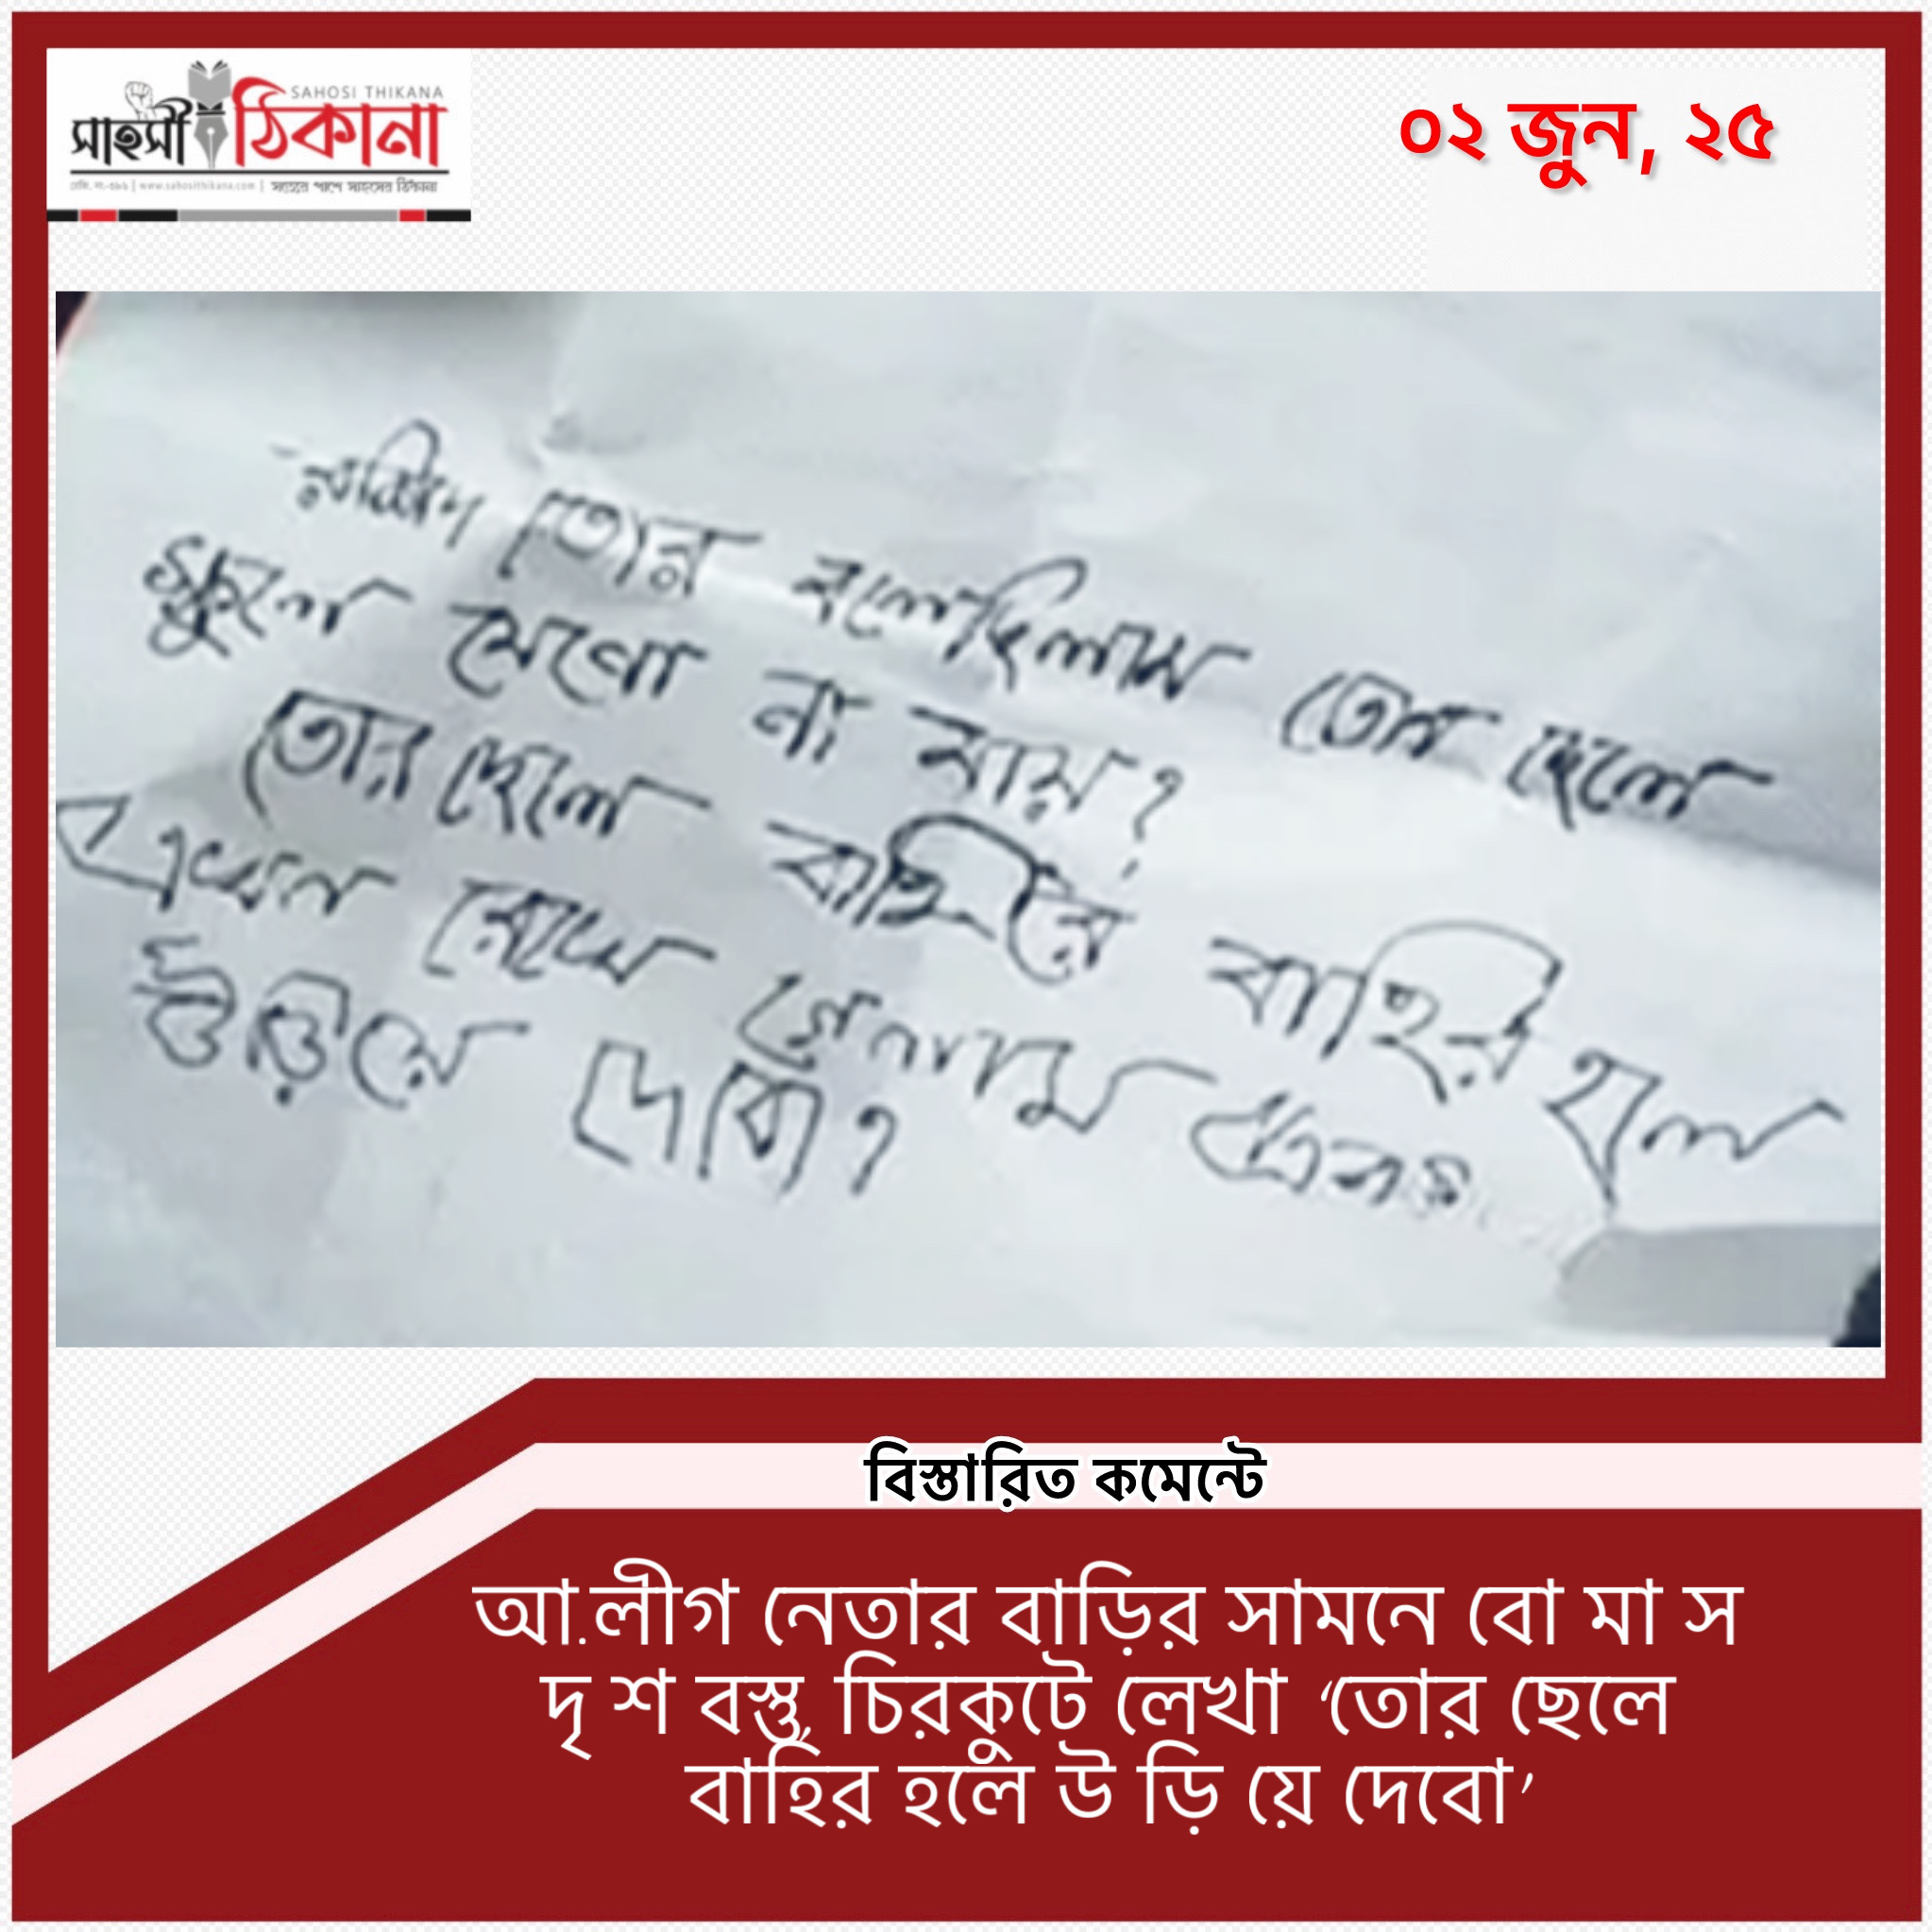 SAHOSI THIKANA
সাহসী ঠিকানা
www.sahosithikana.com | সত্যের পাশে সাহসের ঠিকানা
০২ জুন, ২৫
তোর বলেছিলাম তোর ছেলে
স্কুলে যেনো না যায়?
তোর ছেলে বাহিরে বাহির হলে
এখন রেখে গেলাম এবার
উড়িয়ে দেবো?
বিস্তারিত কমেন্টে
আ.লীগ নেতার বাড়ির সামনে বো মা স
দৃ শ বস্তু, চিরকুটে লেখা ‘তোর ছেলে
বাহির হলে উ ড়ি য়ে দেবো’